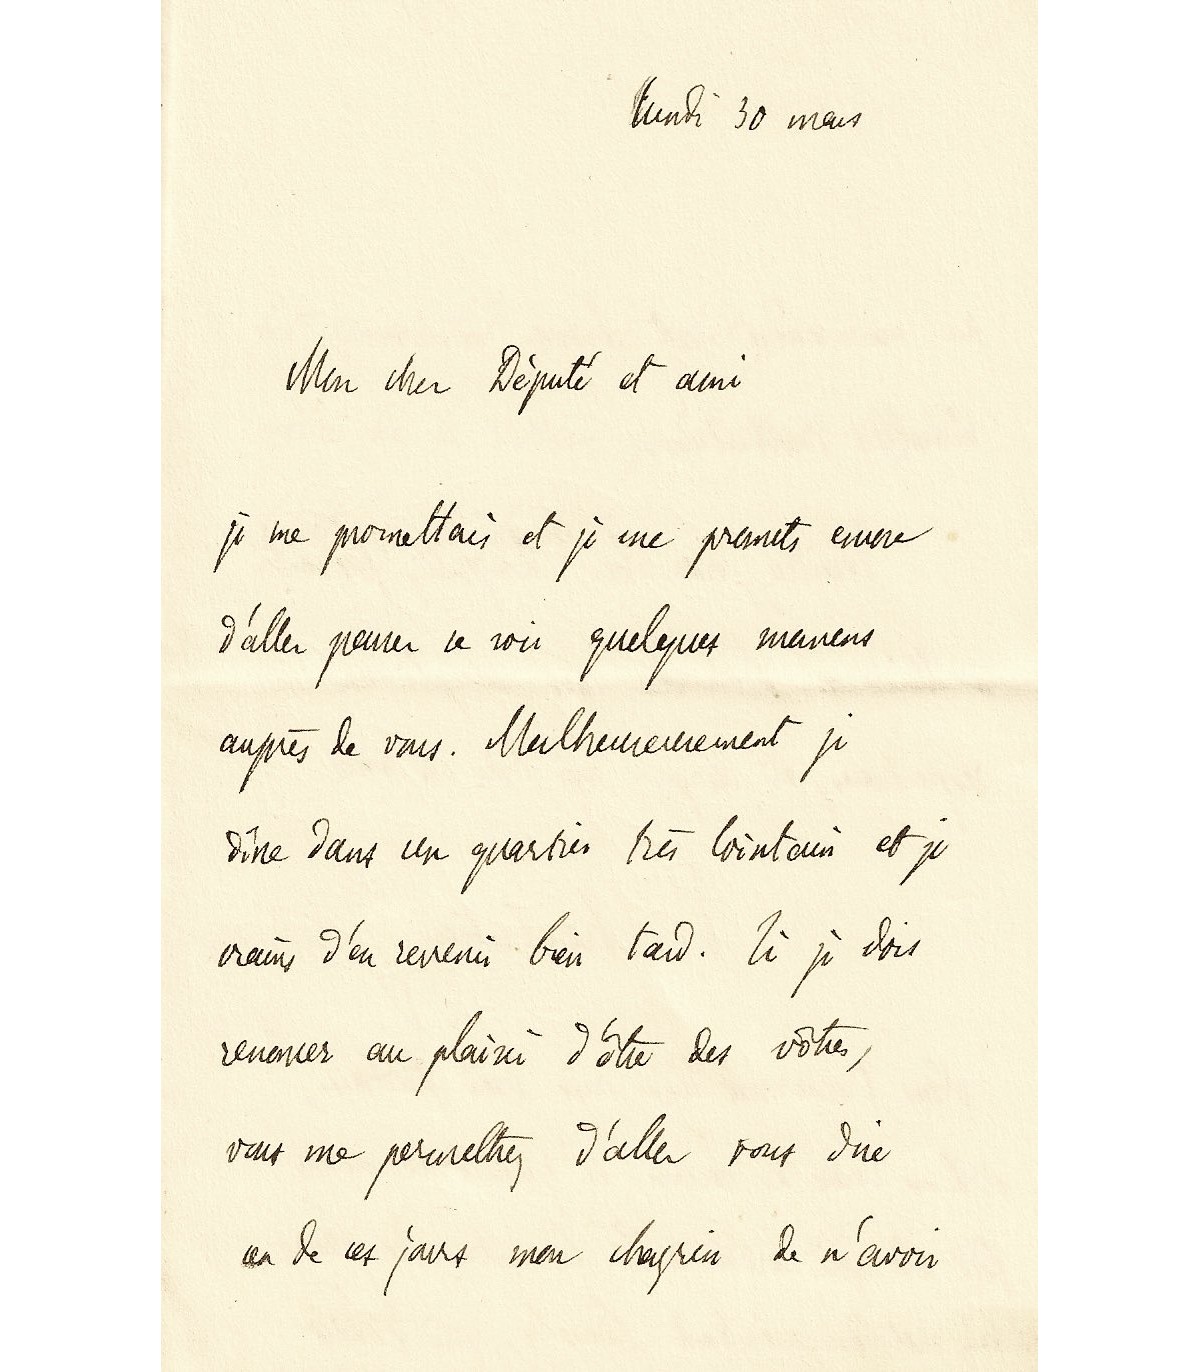 Lundi 30 mars
Mon cher Député et ami
je me promettais et je me promets encore
d'aller passer ce soir quelques momens
auprès de vous. Malheureusement je
dîne dans un quartier très lointain et je
crains d'en revenir bien tard. Si je dois
renoncer au plaisir d'être des vôtres,
vous me permettrez d'aller vous dire
un de ces jours mon chagrin de n'avoir